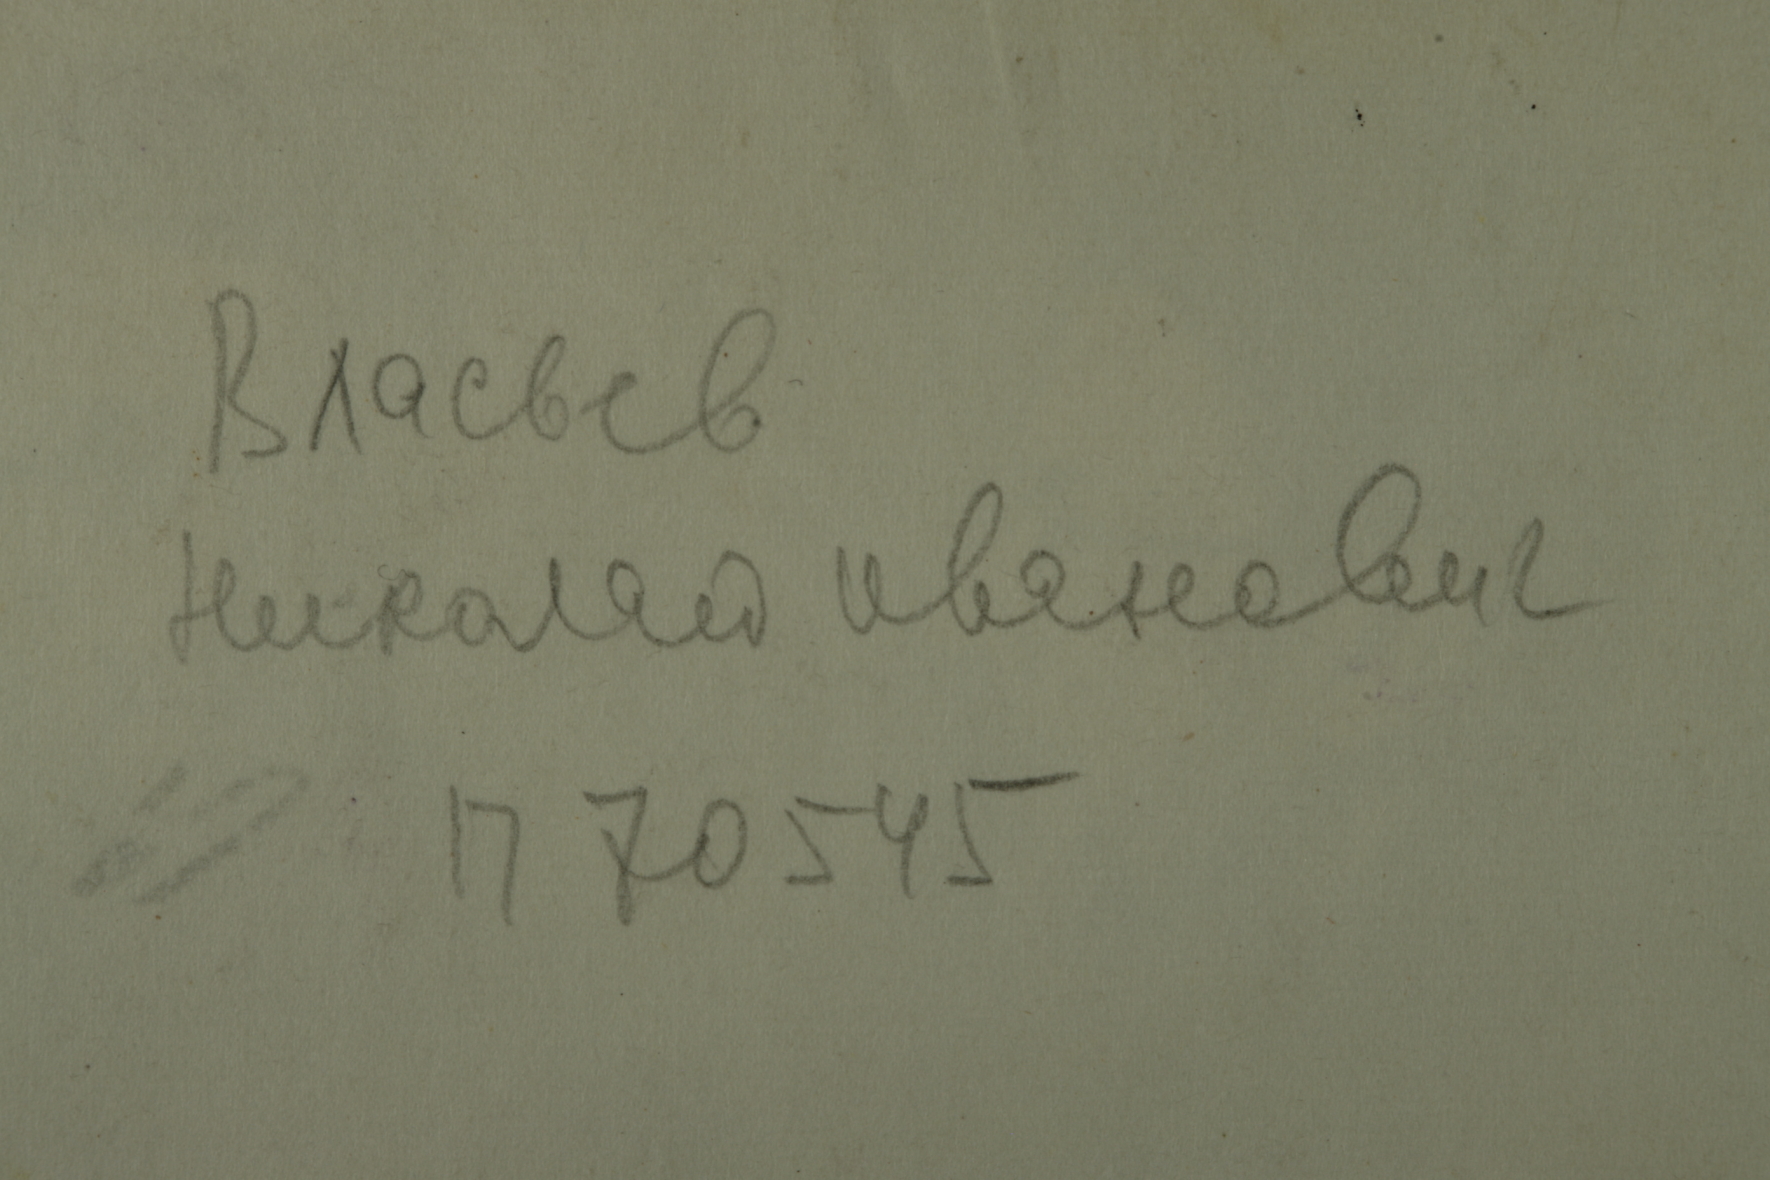 Власьев
Николай Иванович
П 70545